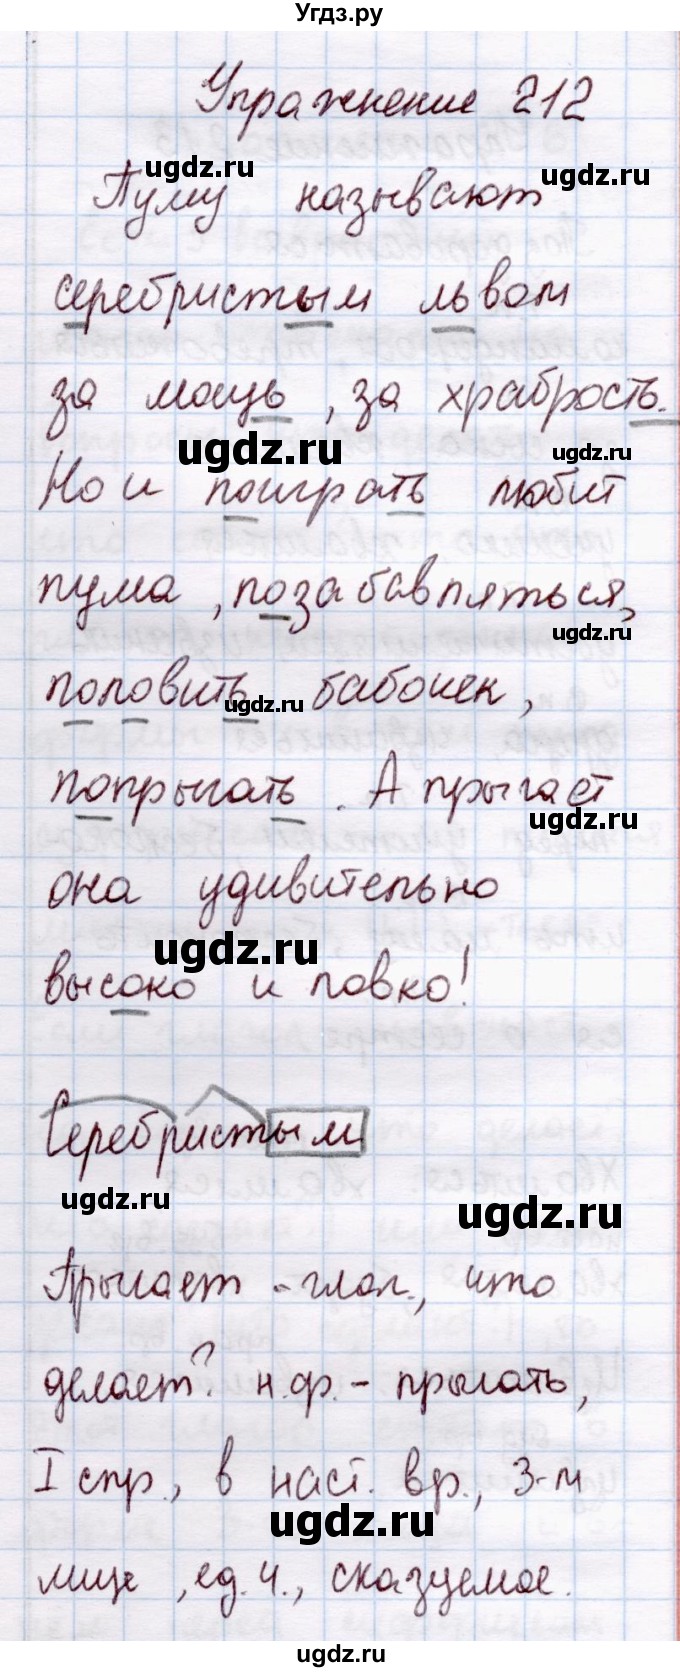 Угдз.ру
Упражнение 212
ugdz.ru ugdz.ru
Пуму называют
серебристым львом
за мощь, за храбрость.
ugdz.ru ugdz.ru
Но и поиграть любит
пума, позабавляться,
ugdz.ru
половить бабочек,
ugdz.ru
попрыгать. А прыгает
ugdz.ru
она удивительно
ugdz.ru
высоко и ловко!
Серебристым
ugdz.ru ugdz.ru
Прыгает - глаг., что
делает? н.ф. - прыгать,
I спр., в наст. вр., 3-м
ugdz.ru
лице, ед.ч., сказуемое.
ugdz.ru